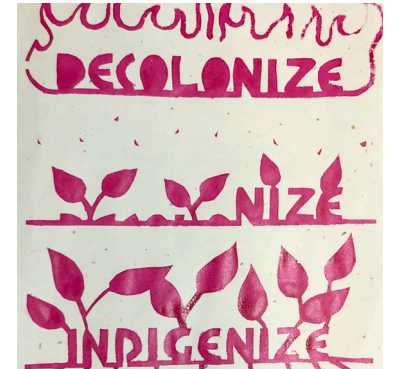 DECOLONIZE
NIZE
INDIGENIZE